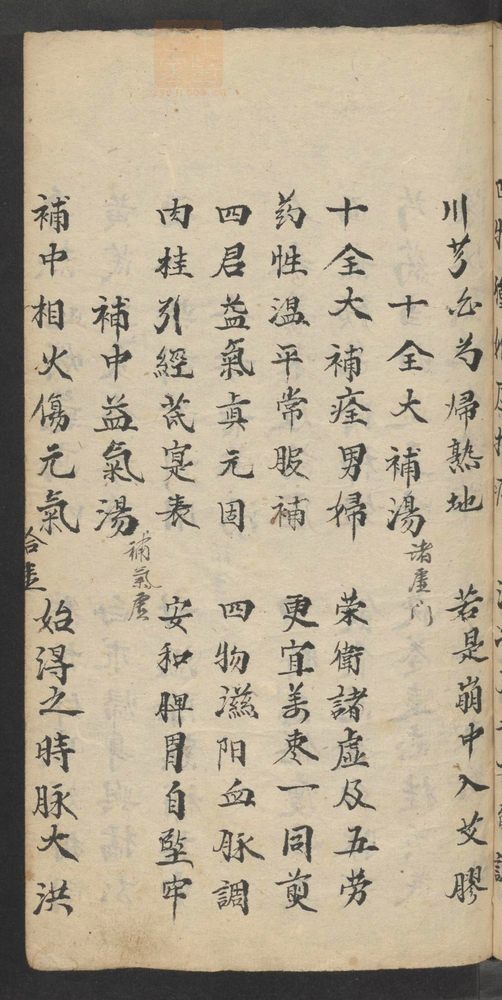 川芎㐲为㷌熟地　若是崩中入艾膠
十全大補湯　諸虛门
十全大補痊男婦　荣衛諸虛及五劳
药性温平常服補　更宜姜枣一同煎
四君益氣真元固　四物滋阳血脉調
肉桂引經芪寔表　安和脾胃自堅牢
補中益氣湯　補氣虛
補中相火傷元氣　始得之時脉大洪